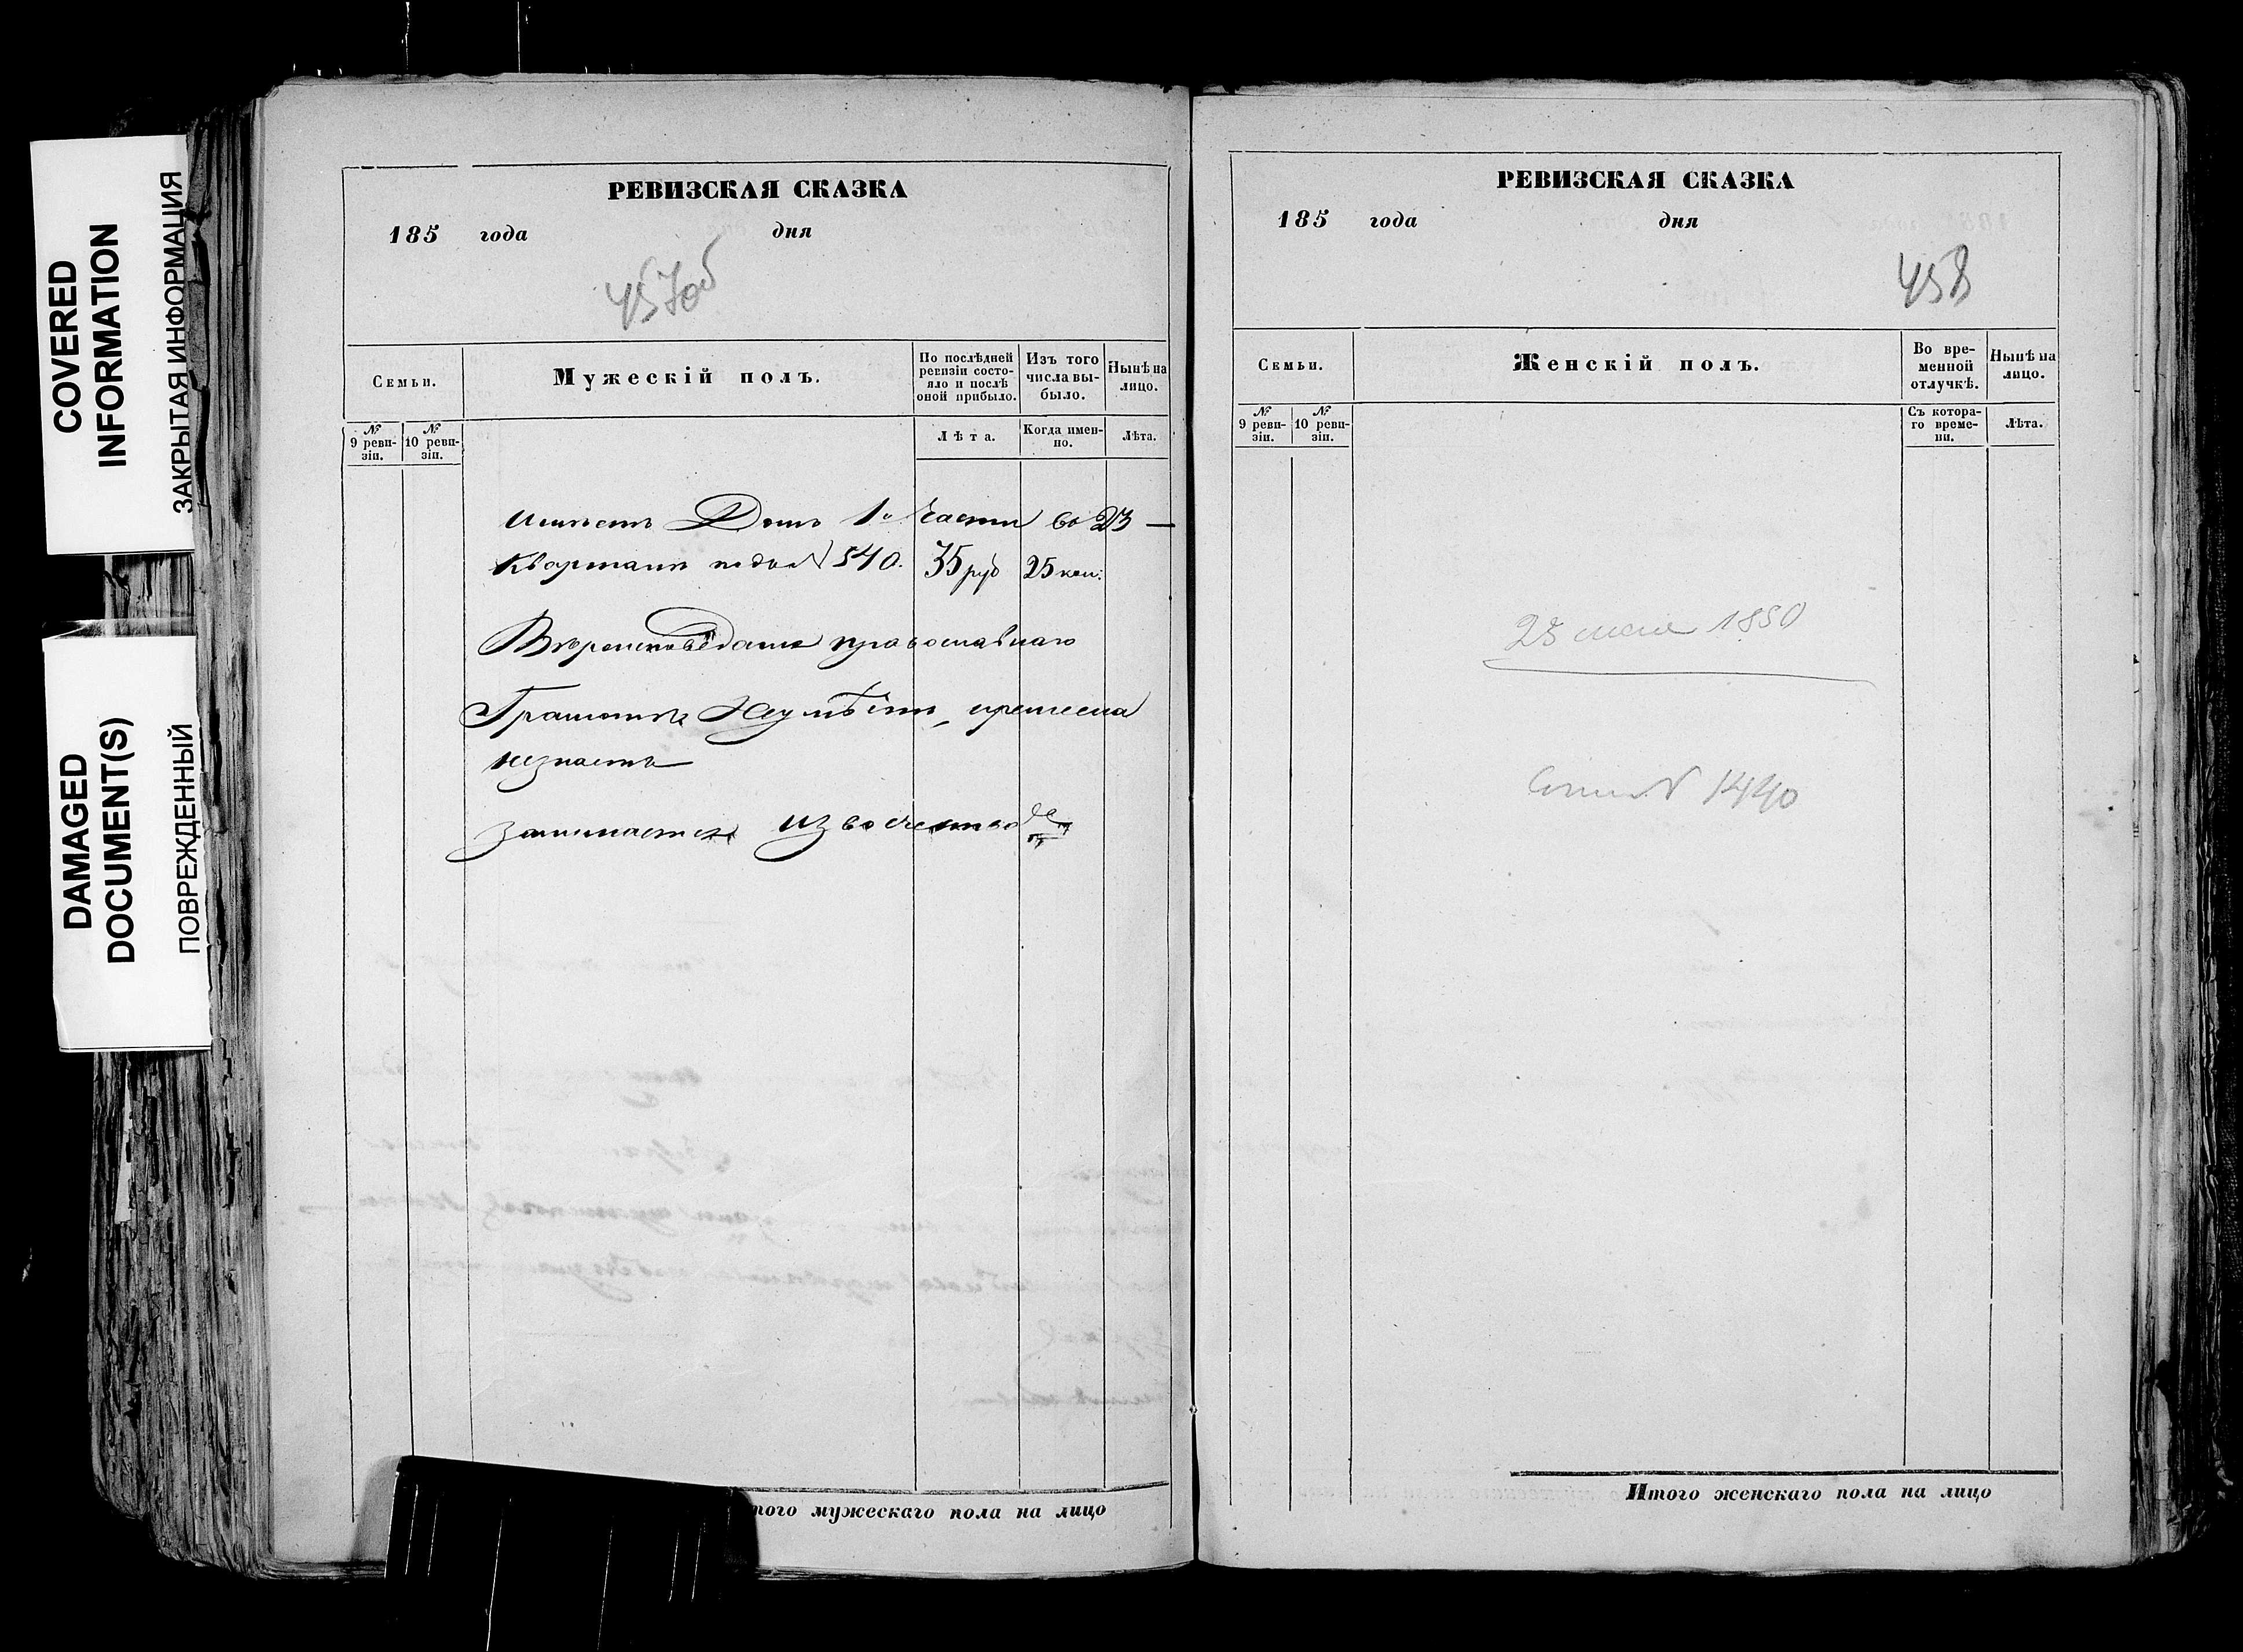 COVERED
INFORMATION
ЗАКРЫТАЯ ИНФОРМАЦИЯ
DAMAGED
DOCUMENT(S)
ПОВРЕЖДЕННЫЙ
РЕВИЗСКАЯ СКАЗКА
185 года дня
457об
Семьи.
Мужескій полъ.
По послѣдней ревизіи состояло и послѣ оной прибыло.
Изъ того числа выбыло.
Нынѣ на лицо.
№ 9 ревизіи.
№ 10 ревизіи.
Лѣта.
Когда именно.
Лѣта.
Имѣетъ Домъ 1й части во 23 —
Кварталѣ подъ N 540. 35 руб 25 коп:
Вѣроисповѣданія православнаго
Грамотѣ Неумѣетъ, ремесла
незнаетъ
Занимается извозчество
того мужескаго пола на лицо
РЕВИЗСКАЯ СКАЗКА
185 года дня
458
Семьи.
Женскій полъ.
Во временной отлучкѣ.
Нынѣ на лицо.
№ 9 ревизіи.
№ 10 ревизіи.
Съ котораго времени.
Лѣта.
1850
N 1440
Итого женскаго пола на лицо